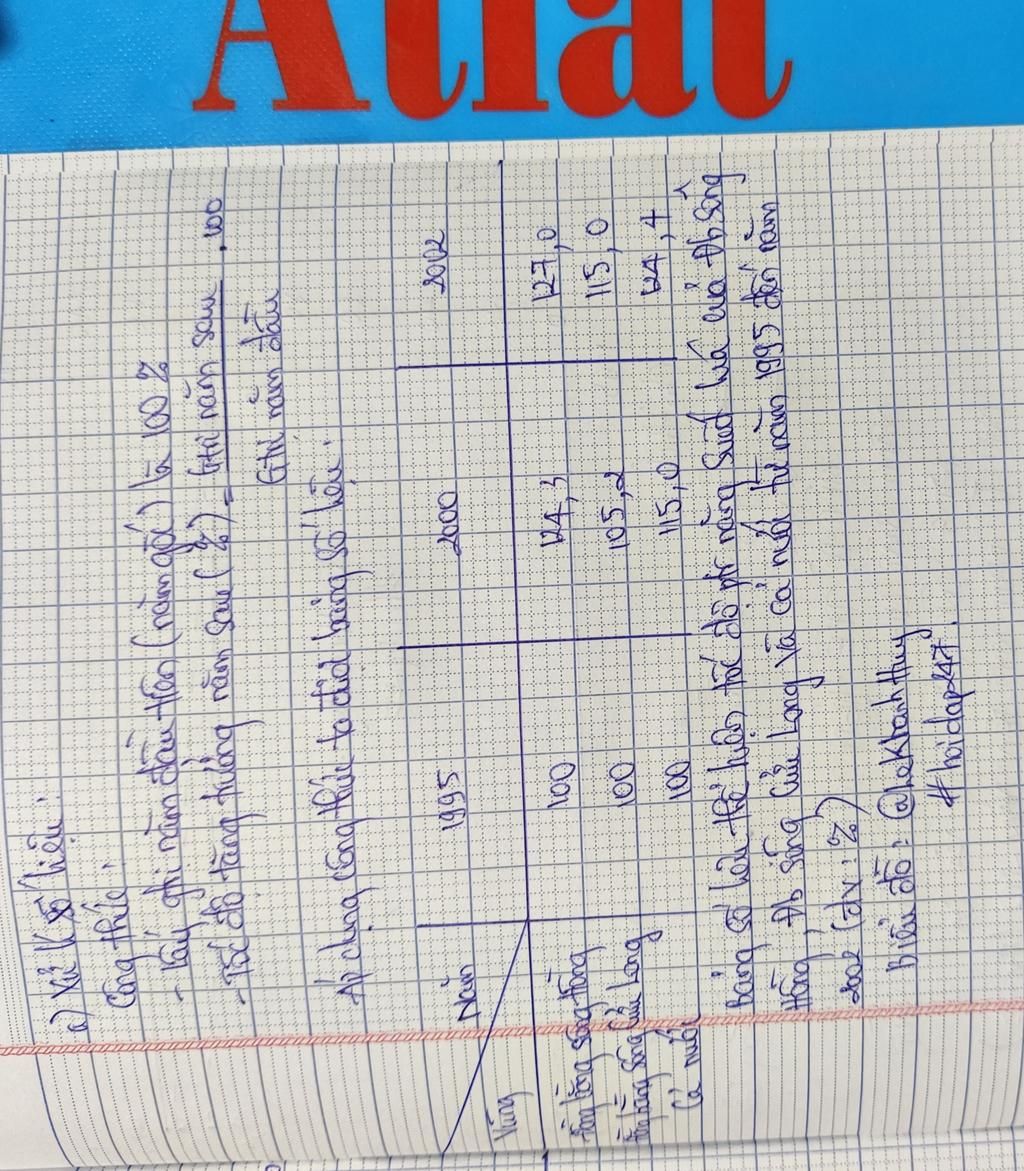 Atlat
a) Xử lí số liệu:
Công thức:
- Lấy ghi năm đầu tiên (năm gốc) là 100 %
- Tốc độ tăng trưởng năm sau (%) = Gtrị năm sau . 100
Gtrị năm đầu
Áp dụng công thức ta được bảng số liệu:
Năm 1995 2000 2002
Vùng
Đồng bằng sông Hồng 100 124,3 127,0
Đồng bằng sông Cửu Long 100 105,2 115,0
Cả nước 100 115,0 124,4
Bảng số liệu thể hiện tốc độ ptr năng suất lúa của Đb sông
Hồng, Đb sông Cửu Long và cả nước từ năm 1995 đến năm
2002 (đv: %)
Biểu đồ: @lekhanhHuy
#hoidap247.